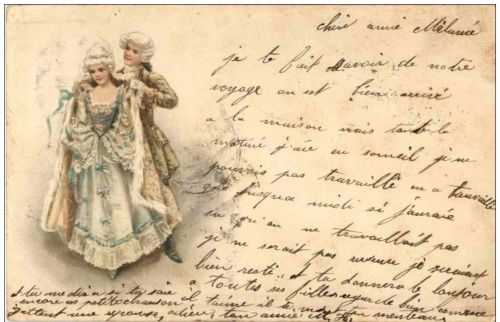 chère amie Mélanie
je te fait savoir de notre
voyage on est bien arrivé
a la maison mais toute la
matiné j'aie eu someil je ne
pouvais pas travaillé on a travaillé
que jusqua midi si j'auraie
su qu'on ne travaillait pas
je ne serait pas revenue je seraiait
bien resté et te donnera le bonjour
a toutes ses filles
si tu me dira si tu sait
encore petit chanson
j'attent une réponse, adieu, ton amie